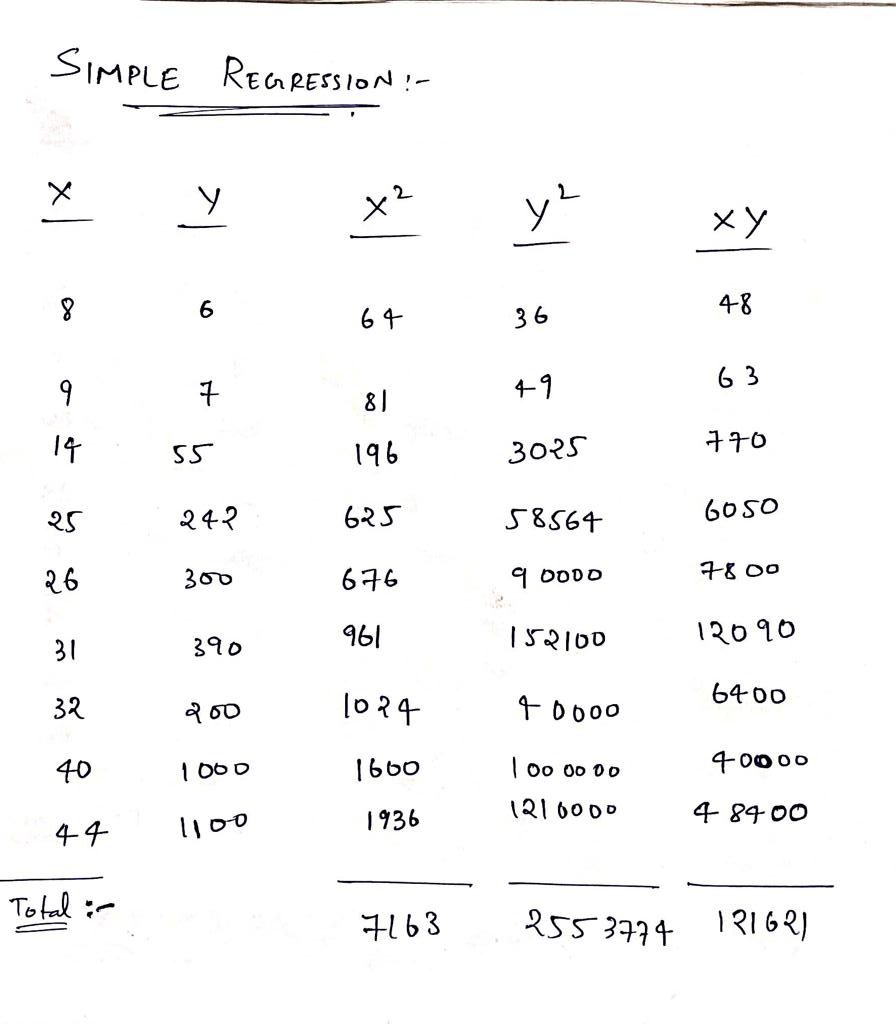 SIMPLE REGRESSION :-
X Y X² Y² XY
8 6 64 36 48
9 7 81 49 63
14 55 196 3025 770
25 242 625 58564 6050
26 300 676 90000 7800
31 390 961 152100 12090
32 200 1024 40000 6400
40 1000 1600 1000000 40000
44 1100 1936 1210000 48400
Total :- 7163 2553774 121621